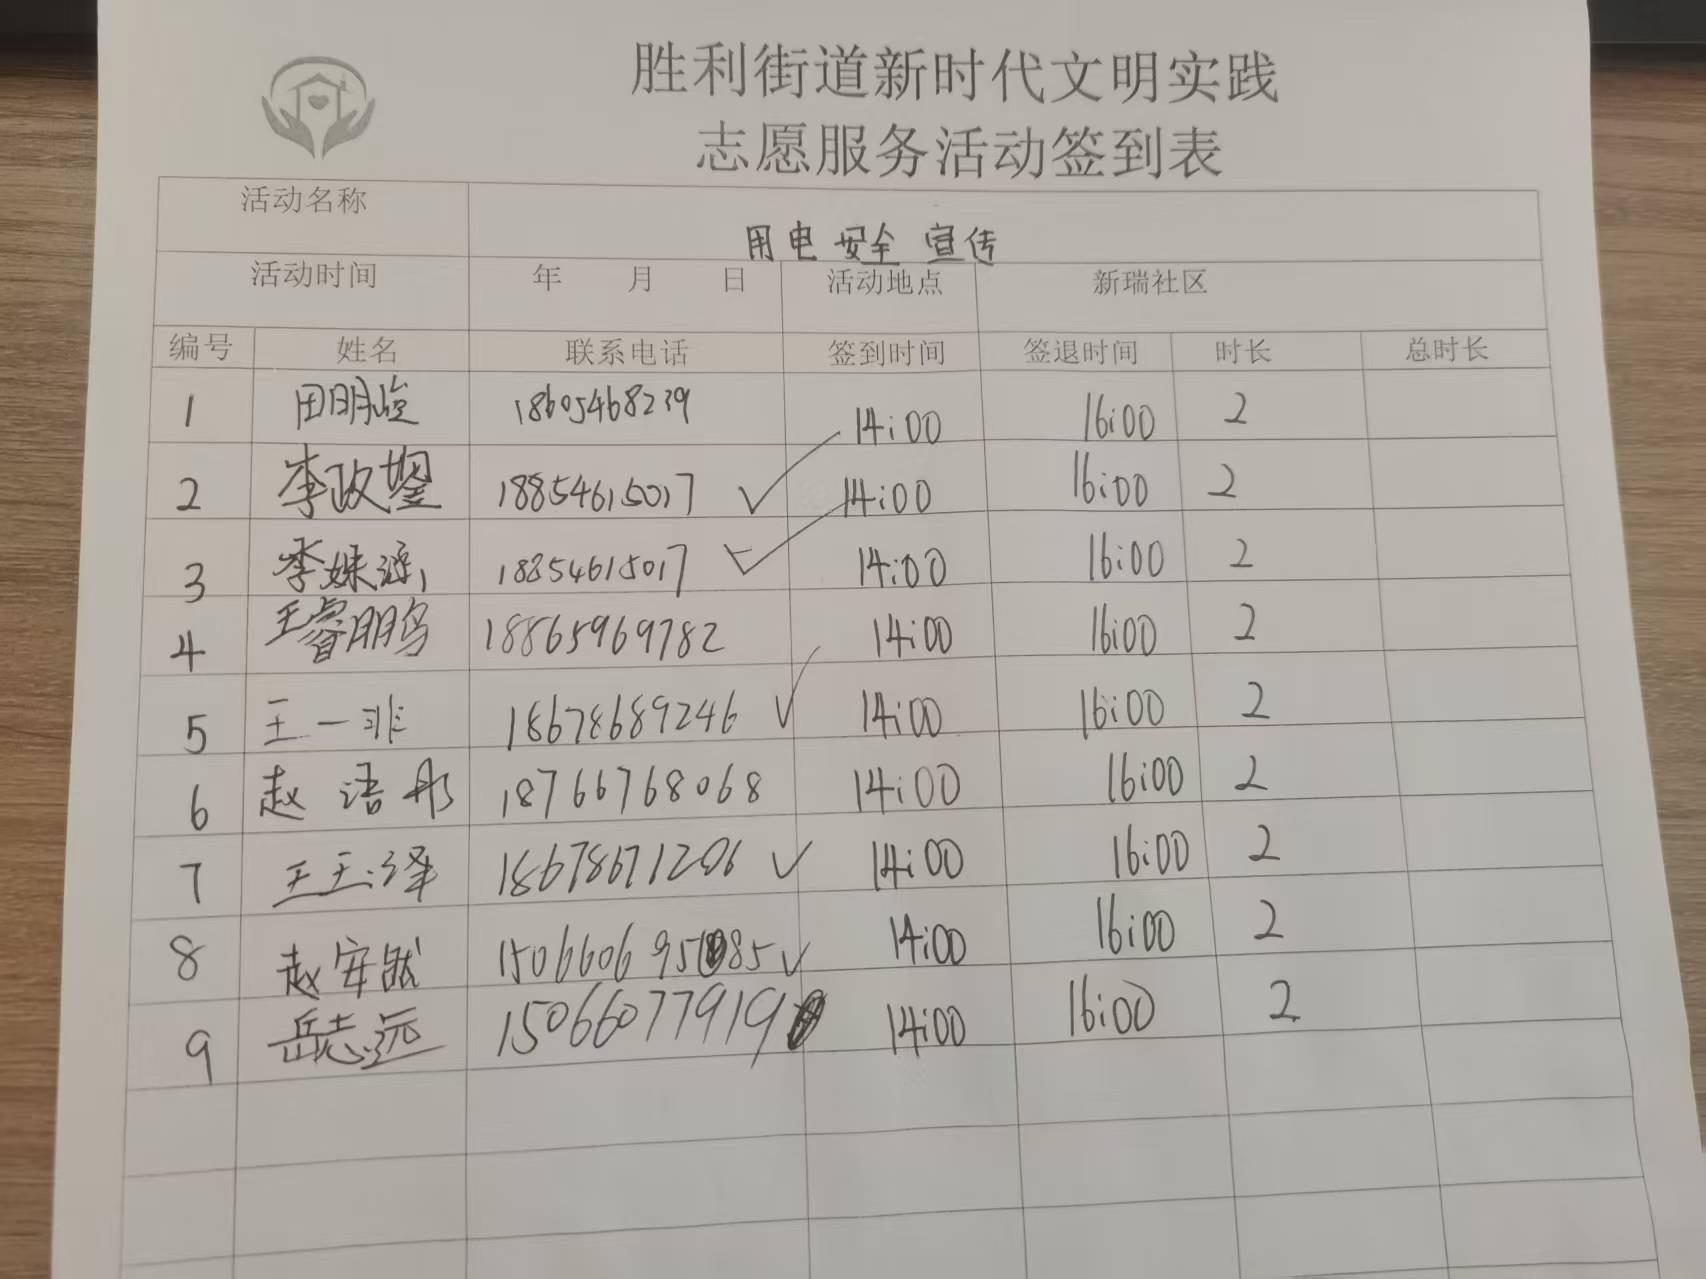 胜利街道新时代文明实践
志愿服务活动签到表
活动名称 用电安全宣传
活动时间 年 月 日 活动地点 新瑞社区
编号 姓名 联系电话 签到时间 签退时间 时长 总时长
1 田明 18605468239 14:00 16:00 2
2 李政 18854615017 ✓ 14:00 16:00 2
3 李姝 18854615017 ✓ 14:00 16:00 2
4 王睿鹏 18865969782 14:00 16:00 2
5 王一非 18678689246 ✓ 14:00 16:00 2
6 赵语彤 18766768068 14:00 16:00 2
7 王玉泽 18678671206 ✓ 14:00 16:00 2
8 赵安然 ✓ 14:00 16:00 2
9 岳志远 15066077919 14:00 16:00 2